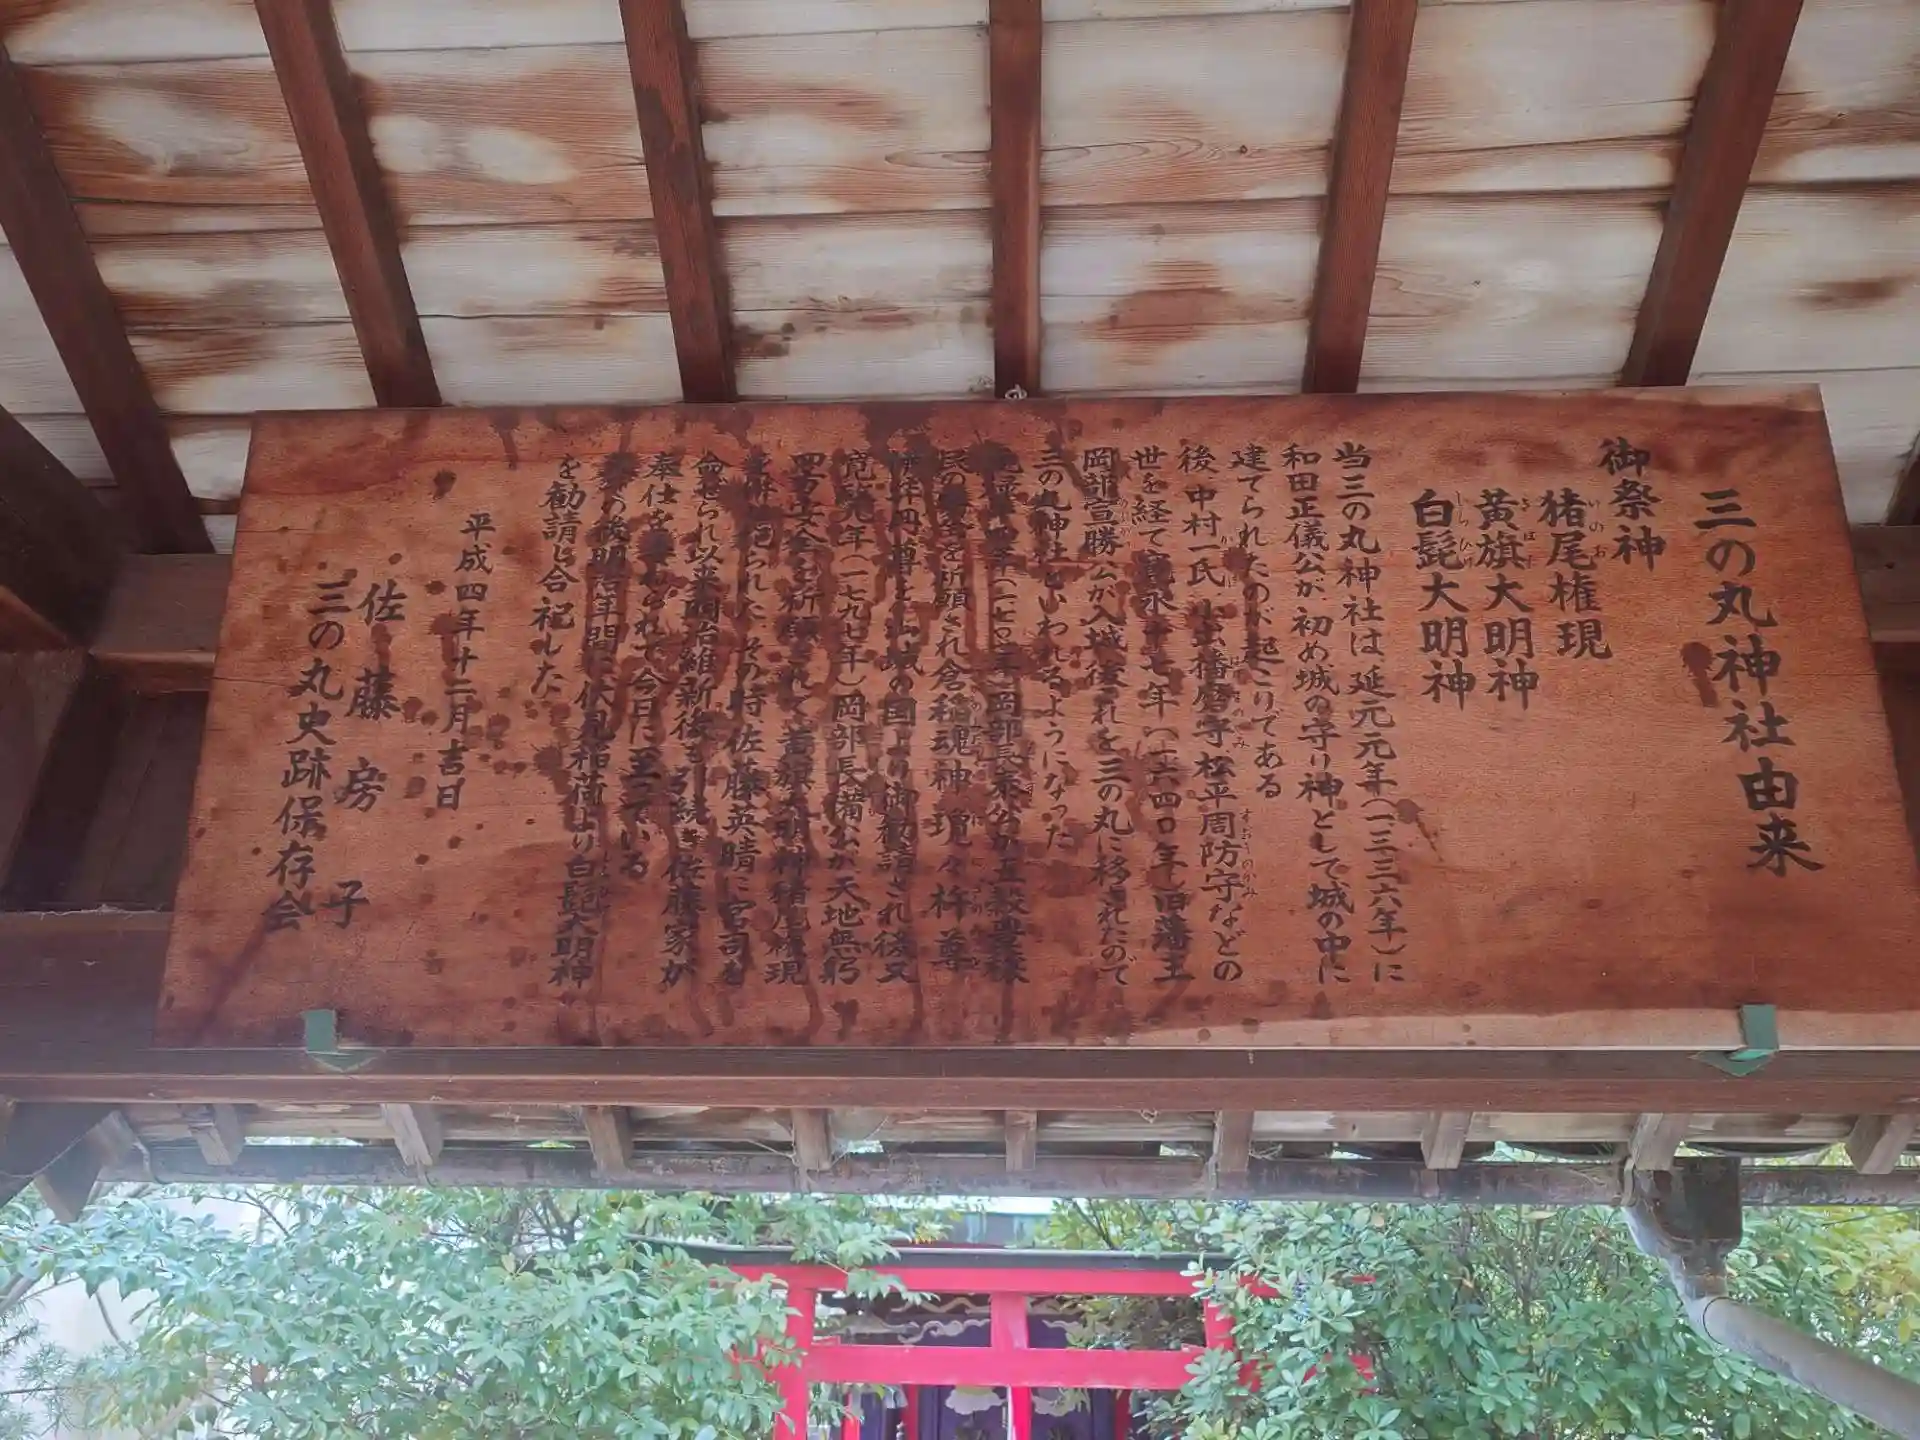 三の丸神社由来
御祭神
猪尾権現
黄旗大明神
白髭大明神
当三の丸神社は延元元年(一三三六年)に
和田正儀公が初め城の守り神として城の中に
建てられたのが起こりである
後、中村一氏 小出播磨守、松平周防守などの
世を経て寛永十七年(一六四〇年)旧藩主
岡部宣勝公が入城後これを三の丸に移されたので
三の丸神社といわれるようになった
元禄 年(一七〇 年)岡部長泰公が五穀豊穣
民の 全を祈願され倉稲魂神 瓊々杵尊
より御勧請され後又
寛 九年(一七九七年)岡部長備公が天地無窮
祈願されて黄旗大明神猪尾権現
を併せ祀られた その時、佐藤英晴に宮司を
命ぜられ以来明治維新後も引続き佐藤家が
奉仕を 今日に至っている
その後明治年間に伏見稲荷より白髭大明神
を勧請し合祀した
平成四年十二月吉日
佐藤房子
三の丸史跡保存会